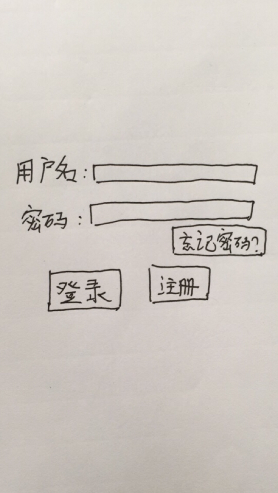 用户名:
密码:
忘记密码?
登录 注册